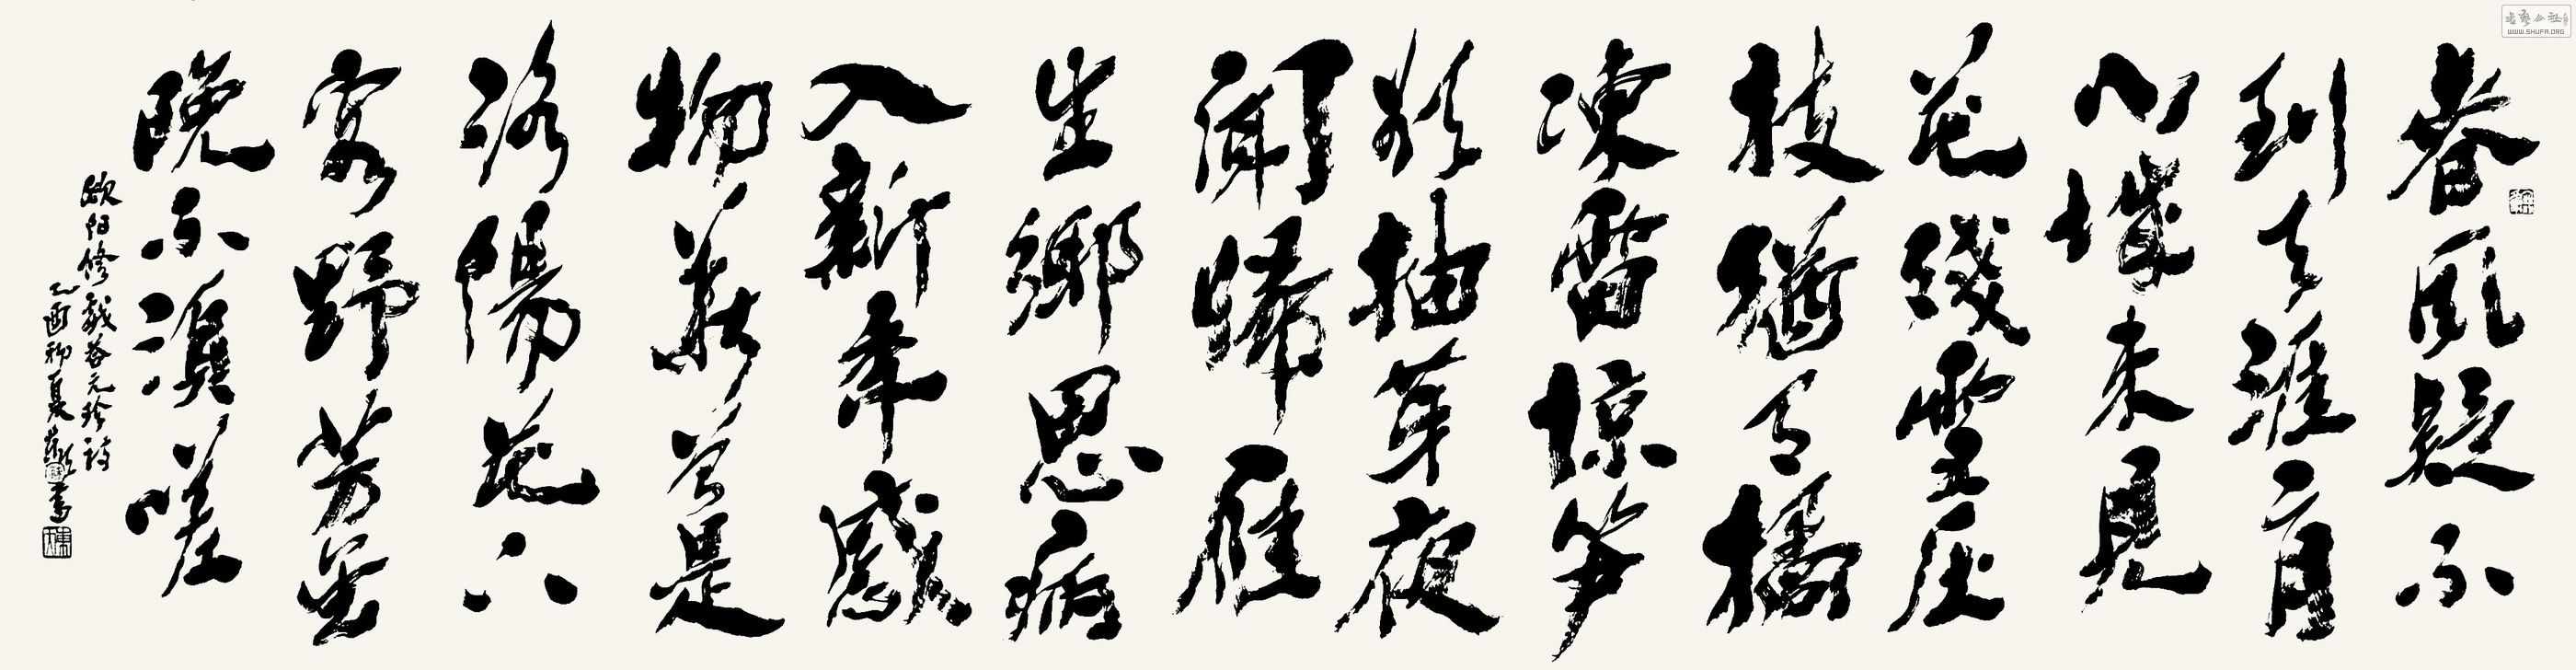 春風疑不
到天涯二月
山城未見
花殘雪压
枝猶有橘
凍雷惊笋
欲抽芽夜
聞歸雁
生鄉思病
入新年感
物華曾是
洛陽花下
客野芳虽
晚不須嗟
歐阳修戲答元珍詩
乙酉初夏 書
书艺公社
WWW.SHUFA.ORG